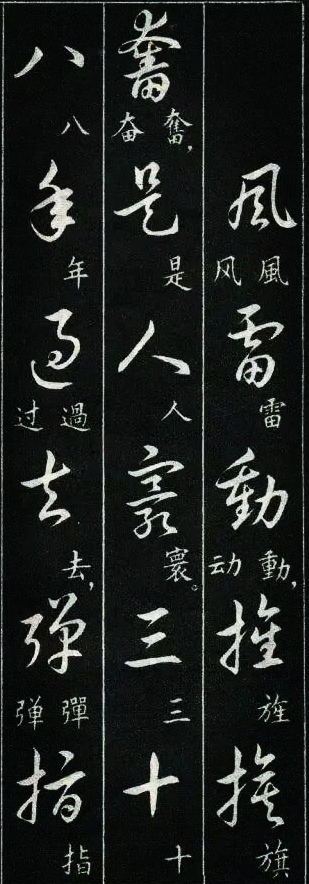 風雷動旌旗
風雷動,旌旗
风动
奮是人寰三十
奮,是人寰。三十
奋
八年過去彈指
八年過去,彈指
过弹